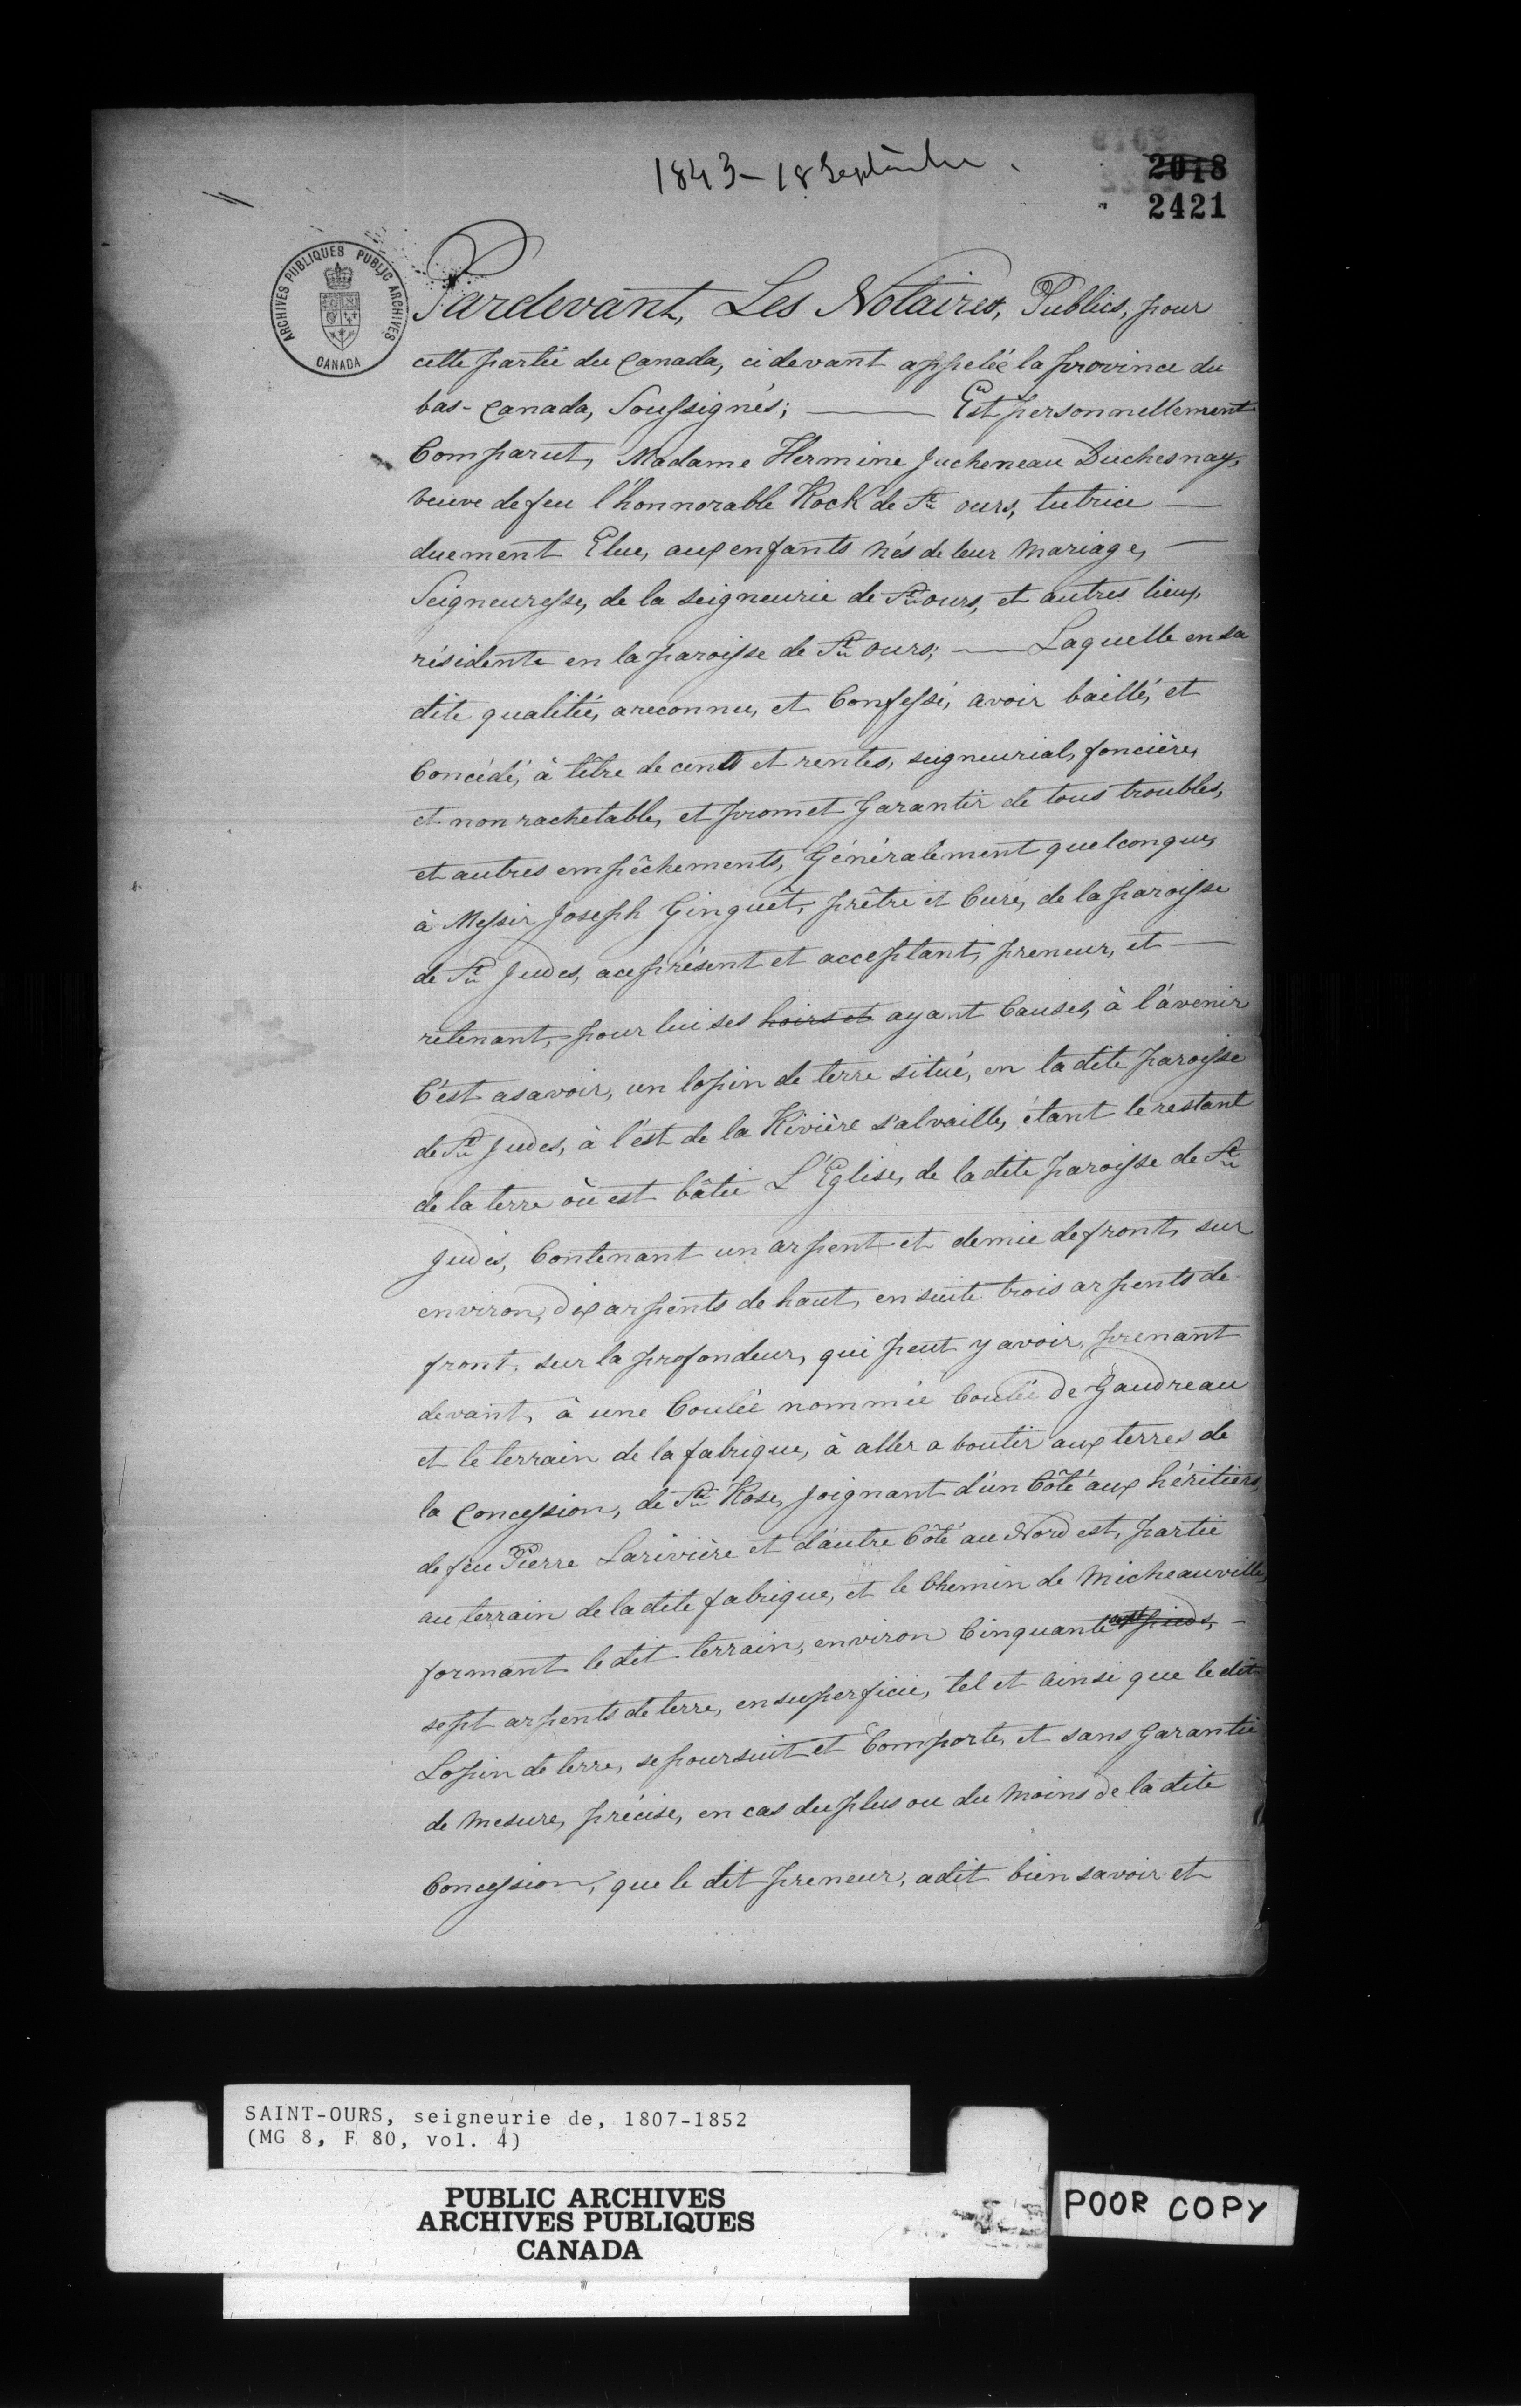 1843 - 18 Septembre.
2018
2421
ARCHIVES PUBLIQUES PUBLIC ARCHIVES
CANADA
Pardevant, Les Notaires, Publics, pour
cette partie du Canada, cidevant appelée la province du
bas-Canada, Soussignés; ——— Est personnellement
Comparut, Madame Hermine Jucheneau Duchesnay,
veuve de feu l'honnorable Rock de St ours, tutrice —
duement Elue, aux enfants nés de leur mariage, —
Seigneuresse, de la seigneurie de St ours, et autres lieux,
résidente en la paroisse de St ours; —— Laquelle en sa
dite qualitié, a reconnu, et Confessé, avoir baillé, et
Concédé, à têtre de cents et rentes, seigneurial, foncière,
et non rachetable, et promet garantir de tous troubles,
et autres empêchements, Généralement quelconque,
à Messir Joseph Ginguêt, prêtre et Curé, de la paroisse
de St Judes, aceprésent et acceptant, preneur, et —
retenant, pour lui ses hoirs et ayant Causes, à l'avenir
C'est asavoir, un lopin de terre situé, en la dite paroisse
de St Judes, à l'est de la Rivière s'alvaille, étant le restant
de la terre où est bâtie L'Eglise, de la dite paroisse de St
Judes, Contenant un arpent et demie de front, sur
environ, dix arpents de haut, ensuite trois arpents de
front, sur la profondeur, qui peut y avoir, prenant
devant, à une Coulée nommée Coulée de Gaudreau
et le terrain de la fabrique, à aller a boutir aux terres de
la Concession, de Ste Rose, joignant d'un Côté aux héritiers,
de feu Pierre Larivière et d'autre Côté au Nord est, partie
au terrain de la dite fabrique, et le Chemin de Micheauville,
formant le dit terrain, environ Cinquante sept pieds, —
sept arpents de terre, en superficie, tel et ainsi que le dit
Lopin de terre, se poursuit et Comporte, et sans garantie
de mesure, précise, en cas du plus ou du moins de la dite
Concession, que le dit preneur, a dit bien savoir et
SAINT-OURS, seigneurie de, 1807-1852
(MG 8, F 80, vol. 4)
PUBLIC ARCHIVES
ARCHIVES PUBLIQUES
CANADA
POOR COPY